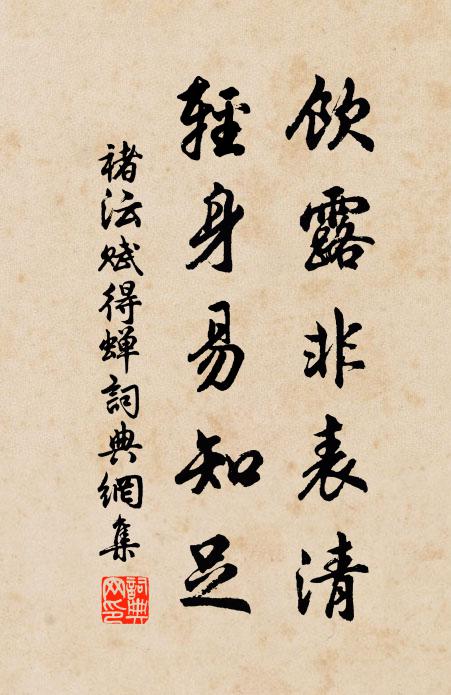 飲露非表清
輕身易知足
褚沄賦得蝉詞典網集
詞典網印